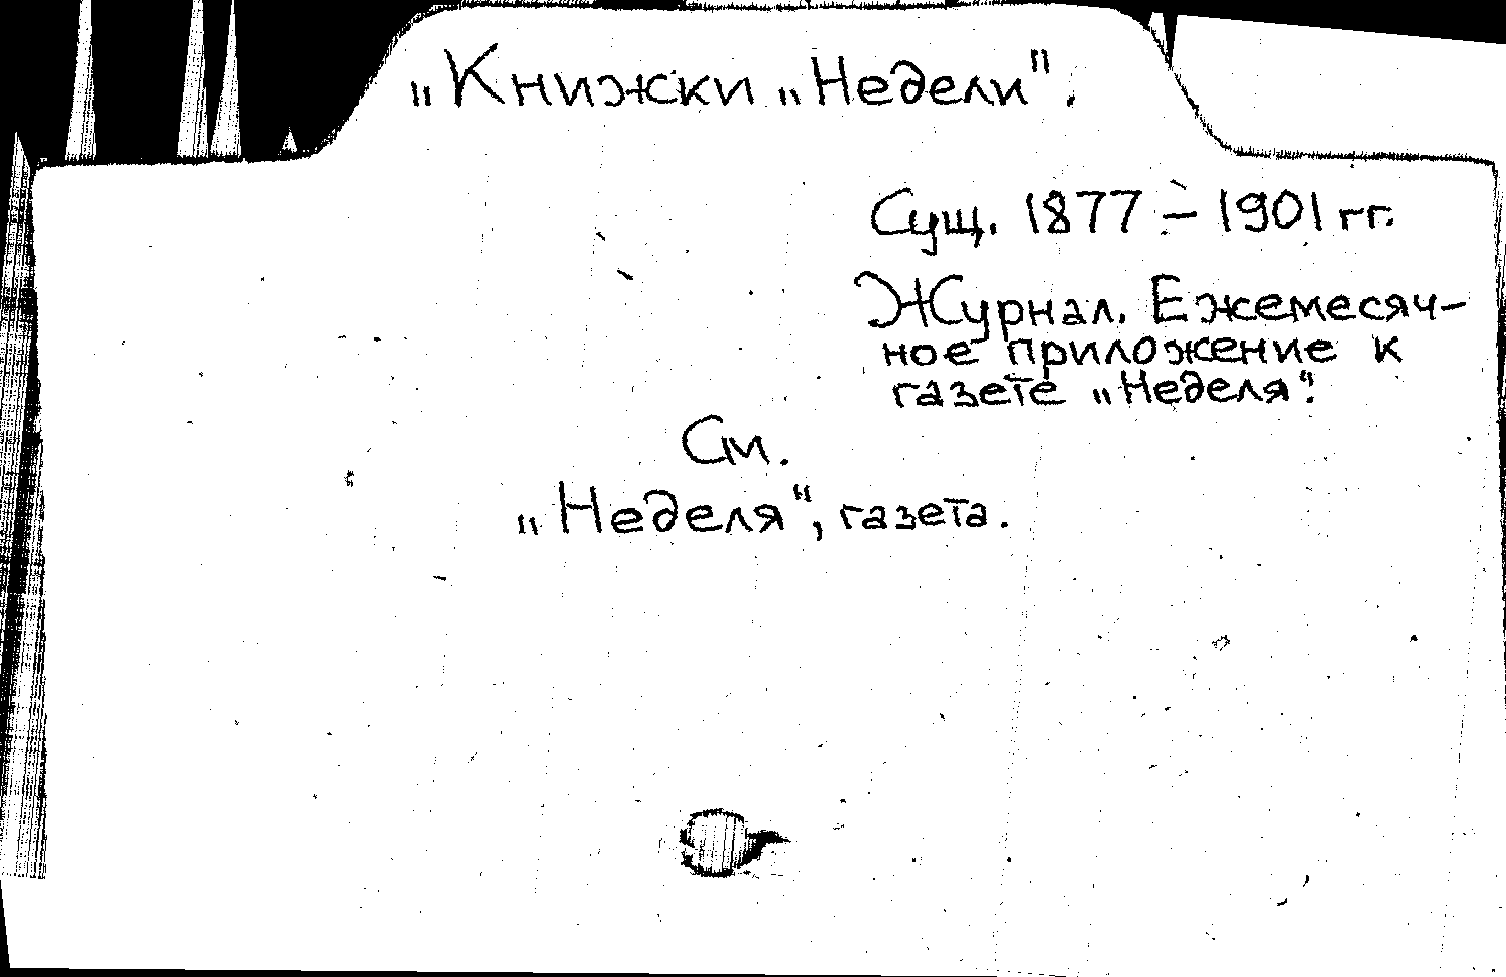 „Книжки „Недели".
Сущ. 1877 – 1901 гг.
Журнал. Ежемесяч-
ное приложение к
газете „Неделя".
См.
„Неделя", газета.